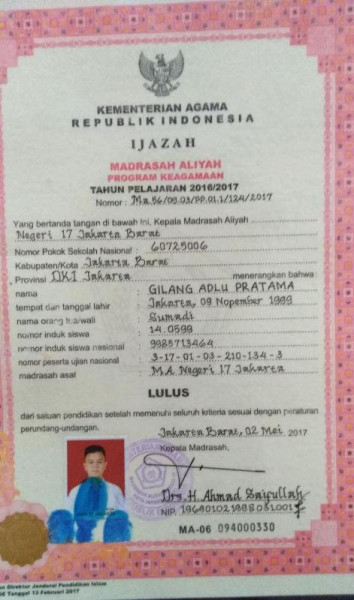 KEMENTERIAN AGAMA
REPUBLIK INDONESIA
IJAZAH
MADRASAH ALIYAH
PROGRAM KEAGAMAAN
TAHUN PELAJARAN 2016/2017
Nomor : Ma.56/09.03/PP.01.1/124/2017
Yang bertanda tangan di bawah ini, Kepala Madrasah Aliyah
Negeri 17 Jakarta Barat
Nomor Pokok Sekolah Nasional : 60725006
Kabupaten/Kota Jakarta Barat
Provinsi DKI Jakarta menerangkan bahwa
nama : GILANG ADLU PRATAMA
tempat dan tanggal lahir : Jakarta, 09 Nopember 1999
nama orang tua/wali : Sumadi
nomor induk siswa : 14.0599
nomor induk siswa nasional : 9985713464
nomor peserta ujian nasional : 3-17-01-03-210-134-3
madrasah asal : MA Negeri 17 Jakarta
LULUS
dari satuan pendidikan setelah memenuhi seluruh kriteria sesuai dengan peraturan
perundang-undangan.
Jakarta Barat, 02 Mei 2017
Kepala Madrasah,
Drs. H. Ahmad Saifullah
NIP. 196901021998031001
MA-06 094000330
Direktur Jenderal Pendidikan Islam
Tanggal 13 Februari 2017